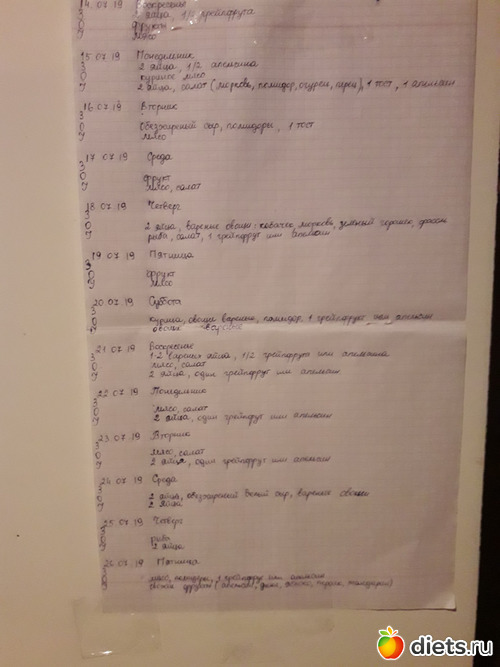 14.07.19 Воскресенье
З 2 яйца, 1/2 грейпфрута
О фрукты
У мясо
15.07.19 Понедельник
З 2 яйца, 1/2 апельсина
О куриное мясо
У 2 яйца, салат (морковь, помидор, огурец, перец), 1 тост, 1 апельсин
16.07.19 Вторник
З
О обезжирный сыр, помидоры, 1 тост
У мясо
17.07.19 Среда
З
О фрукт
У мясо, салат
18.07.19 Четверг
З
О 2 яйца, вареные овощи: кабачок, морковь, зеленый горошек, фасоль
У рыба, салат, 1 грейпфрут или апельсин
19.07.19 Пятница
З
О фрукт
У мясо
20.07.19 Суббота
З
О курица, овощи вареные, помидор, 1 грейпфрукт или апельсин
У овощи вареные
21.07.19 Воскресенье
З 1-2 вареных яйца, 1/2 грейпфрута или апельсина
О мясо, салат
У 2 яйца, один грейпфрут или апельсин
22.07.19 Понедельник
З
О мясо, салат
У 2 яйца, один грейпфрут или апельсин
23.07.19 Вторник
З
О мясо, салат
У 2 яйца, один грейпфрут или апельсин
24.07.19 Среда
З
О 2 яйца, обезжиренный сыр, вареные овощи
У 2 яйца
25.07.19 Четверг
З
О рыба
У 2 яйца
26.07.19 Пятница
З
О мясо, помидоры, 1 грейпфрут или апельсин
У фрукты
diets.ru